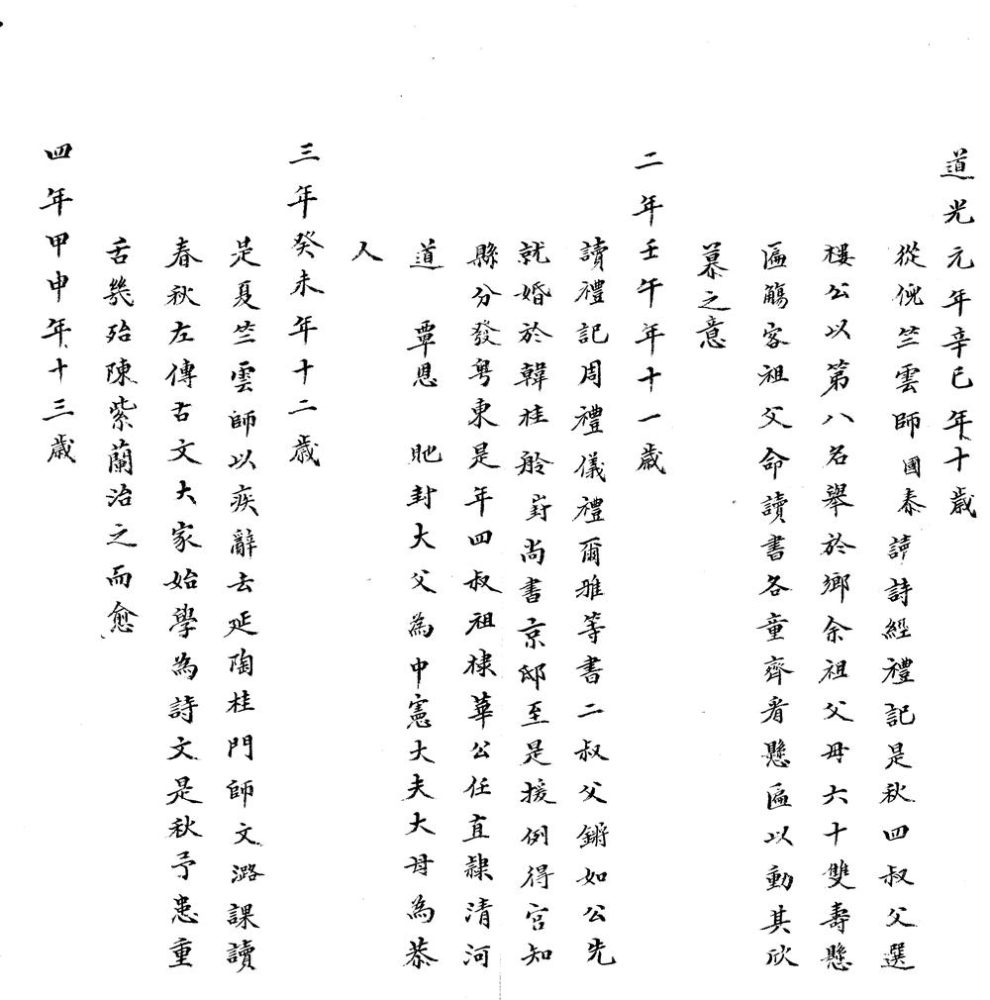 道光元年辛巳年十歲
從倪竺雲師國泰讀詩經禮記是秋四叔父選
樓公以第八名舉於鄉余祖父母六十雙壽懸
匾觴客祖父命讀書各童齊看懸匾以動其欣
慕之意
二年壬午年十一歲
讀禮記周禮儀禮爾雅等書二叔父鏘如公先
就婚於韓桂舲尚書京邸至是援例得官知
縣分發粵東是年四叔祖棣華公任直隸清河
道 覃恩 貤封大父為中憲大夫大母為恭
人
三年癸未年十二歲
是夏竺雲師以疾辭去延陶桂門師文潞課讀
春秋左傳古文大家始學為詩文是秋予患重
舌幾殆陳紫蘭治之而愈
四年甲申年十三歲